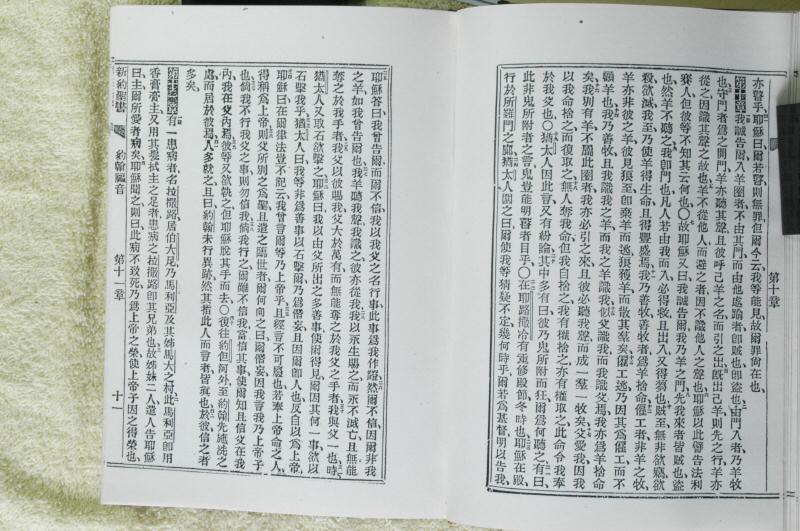 亦瞽乎耶穌曰爾若瞽則無罪但爾今云我等能見故爾罪尚在也
第十章
我誠告爾入羊圈者不由其門而由他處踰者卽賊也卽盜也由門入者乃羊牧
也守門者爲之開門羊亦聽其聲且彼呼己羊之名而引之出旣出己羊則先之行羊亦
從之因識其聲之故也羊不從他人而避之者因不識他人之聲也耶穌以此譬告法利
賽人但彼等不知其云何也〇故耶穌又曰我誠告爾我乃羊之門先我來者皆賊也盜
也然羊不聽之我卽門也凡人若由我而入必得救且出入又得芻也賊至無非欲竊欲
殺欲滅我至乃使羊得生命且得豐盛焉我乃善牧善牧者爲羊捨命傭工者非羊之牧
羊亦非彼之羊彼見狼至卽棄羊而逃狼獲羊而散其羣矣傭工逃乃因其爲傭工而不
顧羊也我乃善牧且我識我之羊而我之羊識我似父識我而我識父焉我亦爲羊捨命
矣我別有羊不屬此圈者我亦必引之來且彼必聽我聲而成一羣一牧矣父愛我因我
以我命捨之而復取之無人奪我命但我自捨之我有權捨之亦有權取之此命令我奉
於我父也〇猶太人因此言又有紛論其中多有曰彼乃鬼所附而狂爾爲何聽之有曰
此非鬼所附者之言鬼豈能明瞽者目乎〇在耶路撒冷有重修殿節冬時也耶穌在殿
行於所羅門之廊猶太人圍之曰爾使我等猜疑不定幾何時乎爾若爲基督明以告我
第十章
耶穌答曰我曾告爾而爾不信我以我父之名行事此事爲我作證然爾不信因爾非我
之羊如我曾告爾也我羊聽我聲我識之彼亦從我我以永生賜之而永不滅亡且無能
奪之於我手者我父以彼賜我父大於萬有而無能奪之於我父之手者我與父一也時
猶太人又取石欲擊之耶穌曰我以由父所出之多善事使爾得見爾因其何一事欲以
石擊我乎猶太人曰我等非爲善事以石擊爾乃爲僭妄且因爾卽人也反自以爲上帝
耶穌曰在爾律法豈不記云我曾言爾等乃上帝乎且經言不可廢也若奉上帝命之人
得稱爲上帝則父所別之爲聖且遣之臨世者爾何向之曰爾僭妄因我言我乃上帝子
也倘我不行我父之事則勿信我倘我行之爾雖不信我當信其事使爾知且信父在我
內我在父內焉彼等又欲執之但耶穌脫其手而去〇復往約但河外至約翰先施洗之
處而居於彼焉人多就之且曰約翰未行異跡然其指此人而言者皆眞也於彼信之者
多矣
第十一章
有一患病者名拉撒路居伯大尼乃馬利亞及其姊馬大之村此馬利亞卽用
香膏膏主又用其髮拭主之足者患病之拉撒路卽其兄弟也故姊妹二人遣人告耶穌
曰主爾所愛者病矣耶穌聞之則曰此病不致死乃爲上帝之榮使上帝子因之得榮也
新約聖書 約翰福音 第十一章 十一